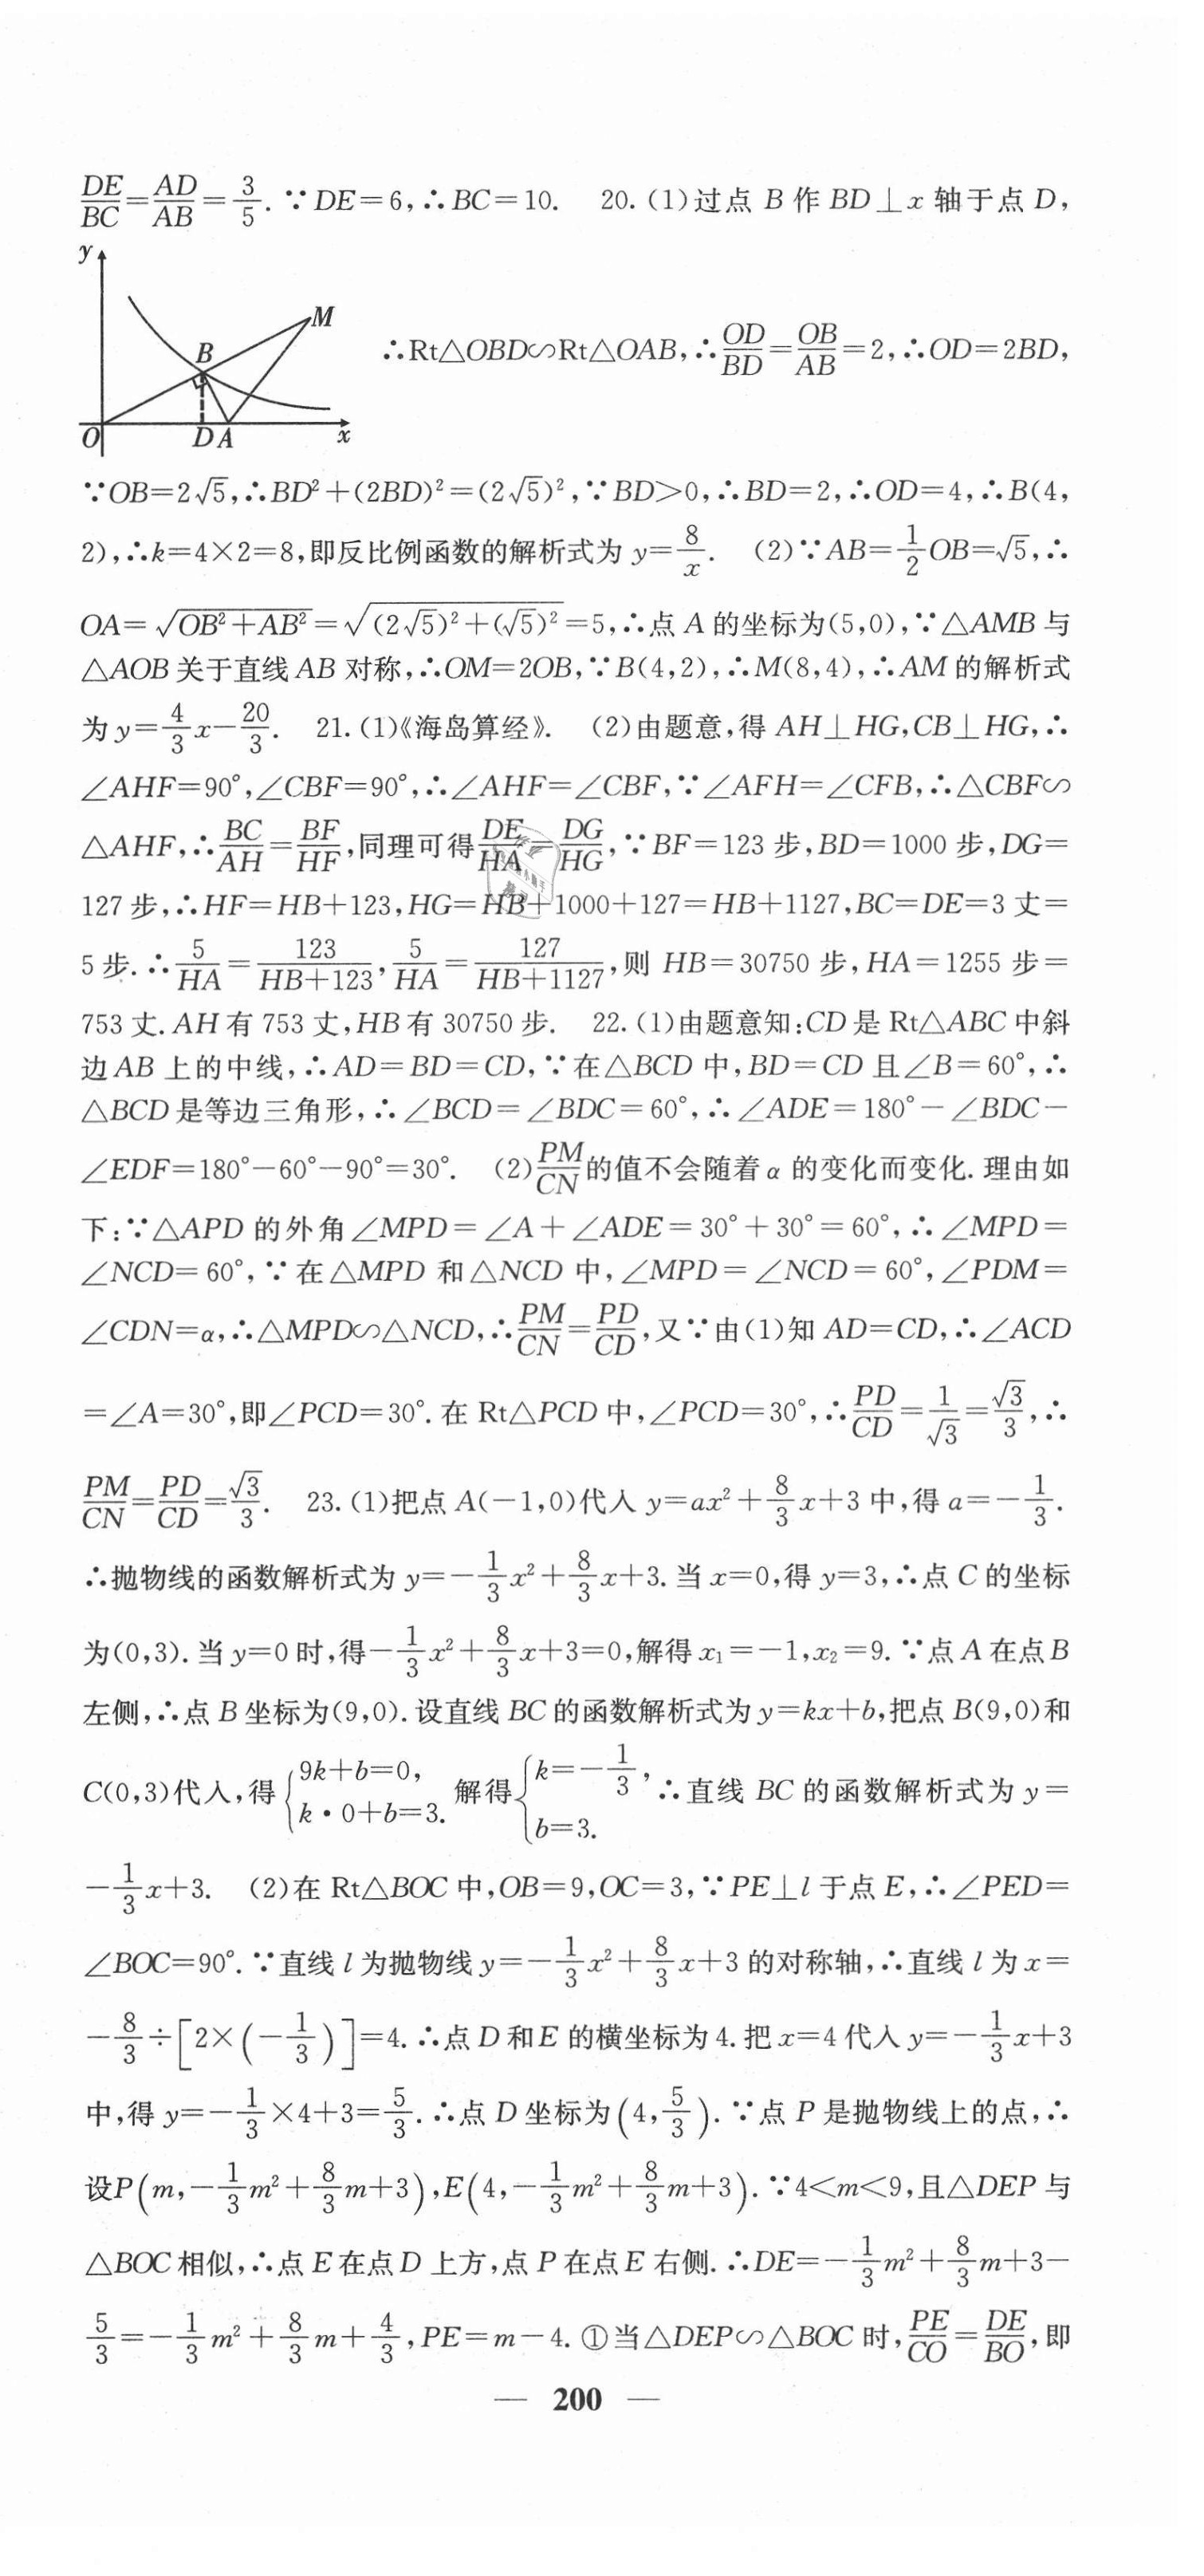 DE/BC=AD/AB=3/5.∵DE=6,∴BC=10. 20.(1)过点 B 作 BD⊥x 轴于点 D,
y
M
B
O
D
A
x
∴Rt△OBD∽Rt△OAB,∴OD/BD=OB/AB=2,∴OD=2BD,
∵OB=2√5,∴BD²+(2BD)²=(2√5)²,∵BD>0,∴BD=2,∴OD=4,∴B(4,
2),∴k=4×2=8,即反比例函数的解析式为 y=8/x. (2)∵AB=1/2OB=√5,∴
OA=√(OB²+AB²)=√((2√5)²+(√5)²)=5,∴点 A 的坐标为(5,0),∵△AMB 与
△AOB 关于直线 AB 对称,∴OM=2OB,∵B(4,2),∴M(8,4),∴AM 的解析式
为 y=4/3x-20/3. 21.(1)《海岛算经》. (2)由题意,得 AH⊥HG,CB⊥HG,∴
∠AHF=90°,∠CBF=90°,∴∠AHF=∠CBF,∵∠AFH=∠CFB,∴△CBF∽
△AHF,∴BC/AH=BF/HF,同理可得DE/HA=DG/HG,∵BF=123 步,BD=1000 步,DG=
127 步,∴HF=HB+123,HG=HB+1000+127=HB+1127,BC=DE=3 丈=
5 步.∴5/HA=123/(HB+123),5/HA=127/(HB+1127),则 HB=30750 步,HA=1255 步=
753 丈.AH 有 753 丈,HB 有 30750 步. 22.(1)由题意知:CD 是 Rt△ABC 中斜
边 AB 上的中线,∴AD=BD=CD,∵在△BCD 中,BD=CD 且∠B=60°,∴
△BCD 是等边三角形,∴∠BCD=∠BDC=60°,∴∠ADE=180°-∠BDC-
∠EDF=180°-60°-90°=30°. (2)PM/CN的值不会随着 α 的变化而变化.理由如
下:∵△APD 的外角∠MPD=∠A+∠ADE=30°+30°=60°,∴∠MPD=
∠NCD=60°,∵在△MPD 和△NCD 中,∠MPD=∠NCD=60°,∠PDM=
∠CDN=α,∴△MPD∽△NCD,∴PM/CN=PD/CD,又∵由(1)知 AD=CD,∴∠ACD
=∠A=30°,即∠PCD=30°.在 Rt△PCD 中,∠PCD=30°,∴PD/CD=1/√3=√3/3,∴
PM/CN=PD/CD=√3/3. 23.(1)把点 A(-1,0)代入 y=ax²+8/3x+3 中,得 a=-1/3.
∴抛物线的函数解析式为 y=-1/3x²+8/3x+3.当 x=0,得 y=3,∴点 C 的坐标
为(0,3).当 y=0 时,得-1/3x²+8/3x+3=0,解得 x₁=-1,x₂=9.∵点 A 在点 B
左侧,∴点 B 坐标为(9,0).设直线 BC 的函数解析式为 y=kx+b,把点 B(9,0)和
C(0,3)代入,得{9k+b=0, k·0+b=3. 解得{k=-1/3, b=3. ∴直线 BC 的函数解析式为 y=
-1/3x+3. (2)在 Rt△BOC 中,OB=9,OC=3,∵PE⊥l 于点 E,∴∠PED=
∠BOC=90°.∵直线 l 为抛物线 y=-1/3x²+8/3x+3 的对称轴,∴直线 l 为 x=
-8/3÷[2×(-1/3)]=4.∴点 D 和 E 的横坐标为 4.把 x=4 代入 y=-1/3x+3
中,得 y=-1/3×4+3=5/3.∴点 D 坐标为(4,5/3).∵点 P 是抛物线上的点,∴
设P(m,-1/3m²+8/3m+3),E(4,-1/3m²+8/3m+3).∵4<m<9,且△DEP 与
△BOC 相似,∴点 E 在点 D 上方,点 P 在点 E 右侧.∴DE=-1/3m²+8/3m+3-
5/3=-1/3m²+8/3m+4/3,PE=m-4.①当△DEP∽△BOC 时,PE/CO=DE/BO,即
— 200 —